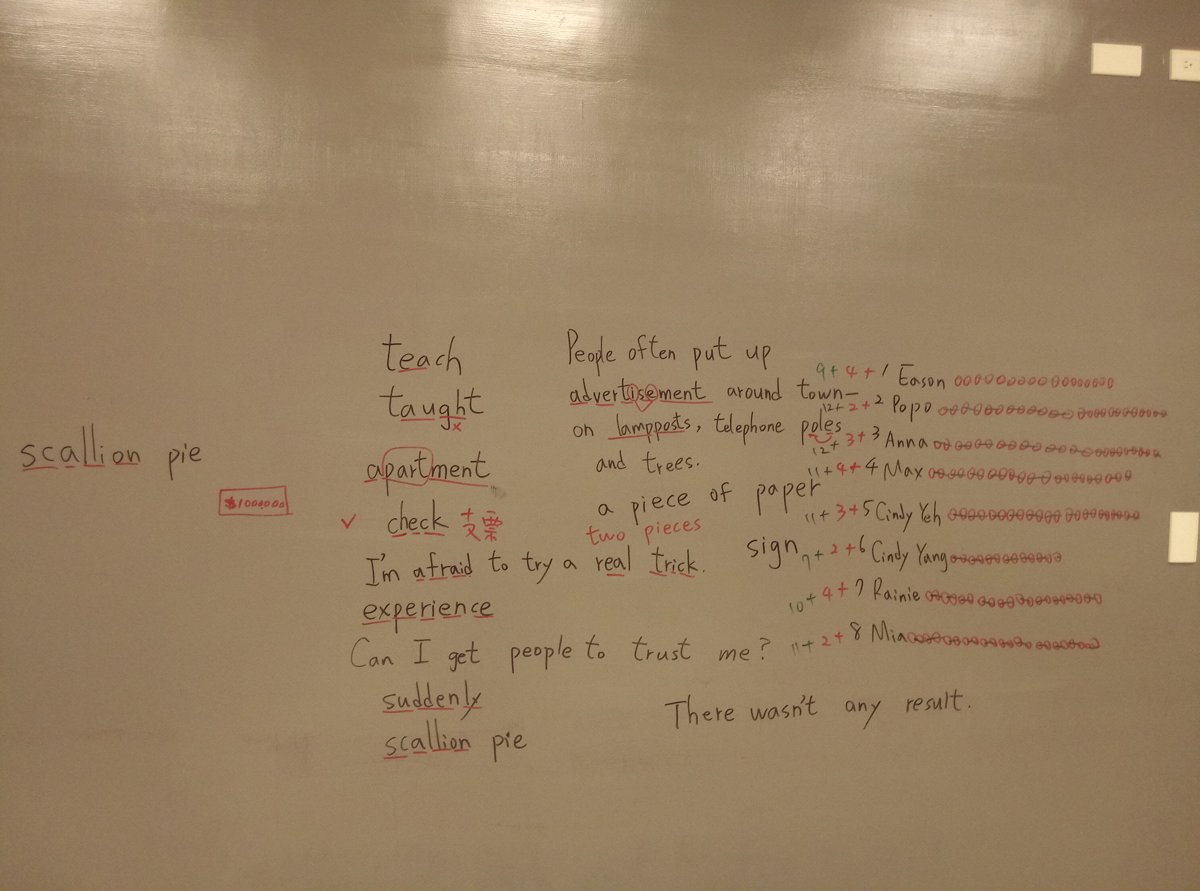 scallion pie
$1000000
teach
taught
apartment
check 支票
I'm afraid to try a real trick.
experience
Can I get people to trust me?
suddenly
scallion pie
People often put up
advertisement around town-
on lampposts, telephone poles
and trees.
a piece of paper
two pieces
sign
There wasn't any result.
9+4+1 Eason
12+2+2 Popo
12+3+3 Anna
11+4+4 Max
11+3+5 Cindy Yeh
7+2+6 Cindy Yang
10+4+7 Rainie
11+2+8 Mia